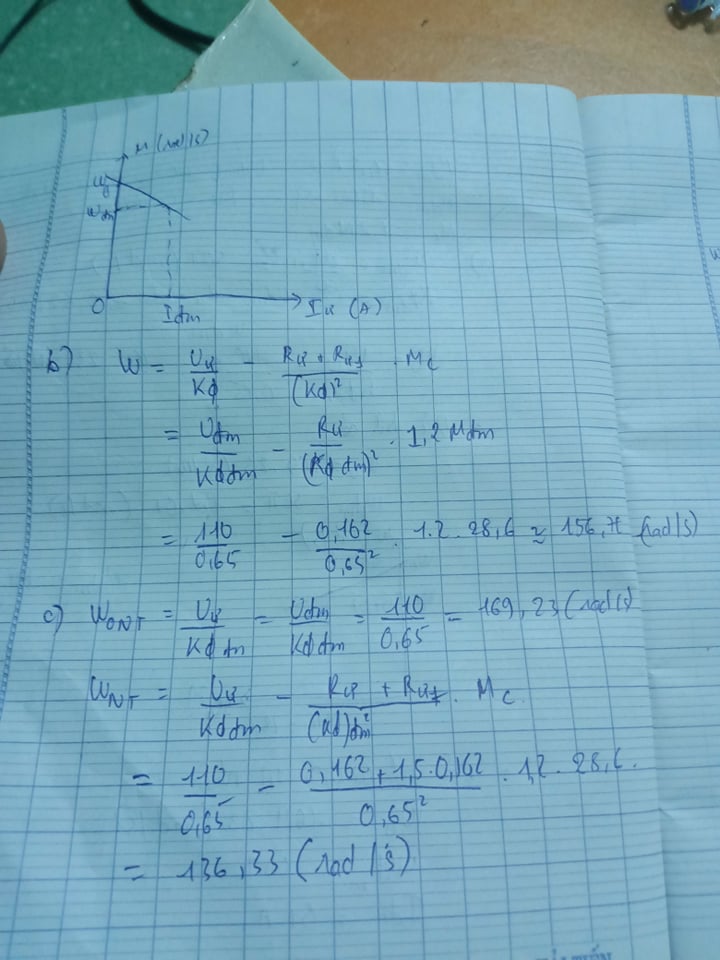 M (rad/s)
ω₀
ωđm
O
Iđm
Iư (A)
b) W = Uư/Kϕ - (Rư + Rưf)/(Kϕ)² . Mc
= Uđm/Kϕđm - Rư/(Kϕđm)² . 1,2 Mđm
= 110/0,65 - 0,162/0,65² . 1.2 . 28,6 ≈ 156,7 (rad/s)
c) WONT = Uư/Kϕđm = Uđm/Kϕđm = 110/0,65 = 169,23 (rad/s)
WNT = Uư/Kϕđm - (Rư + Rưf)/(Kϕ)đm² . Mc
= 110/0,65 - (0,162 + 1,5.0,162)/0,65² . 1,2 . 28,6.
= 136,33 (rad/s)